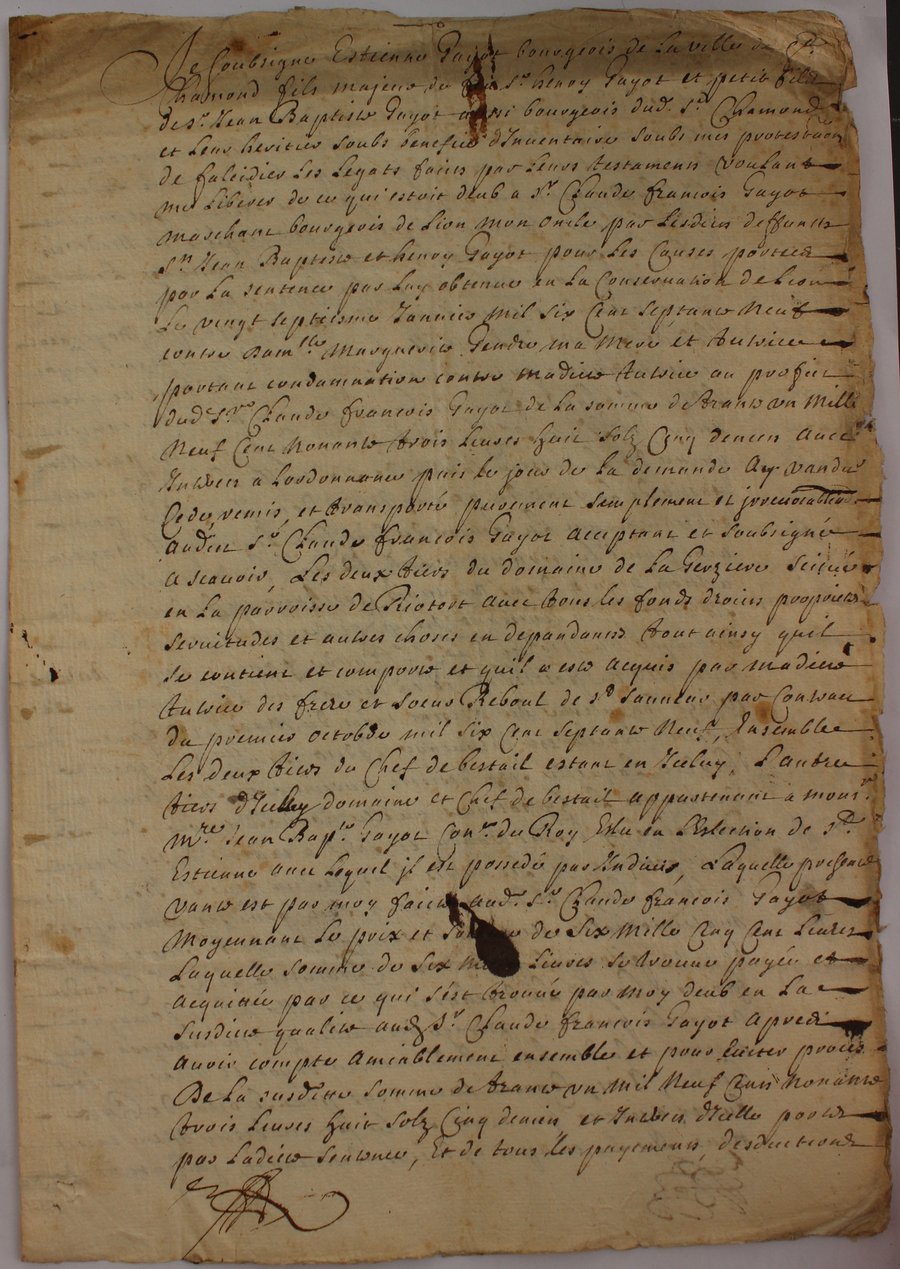 Je Soubsigné Estienne Gayot bourgeois de La ville de St
Chamond fils majeur de feu Sr henry Gayot et petit fils
de Sr Jean Baptiste Gayot aussi bourgeois dud. St Chamond
et Leur heritier soubs benefice d'Inventaire soubs mes protestaõns
de falcidier Les Legats faits par Leurs testaments voulant
me Liberer de ce qui estoit deub a Sr Claude francois Gayot
marchant bourgeois de Lion mon oncle par Lesdits deffuncts
Srs Jean Baptiste et henry Gayot pour Les Causes portees
par La sentence par Luy obtenue en La Conservation de Lion
Le vingt septiesme Janvier mil six Cent septante Neuf
contre Damlle Marguerite Gendre ma Mere et tutrice
portant condamnation contre madite tutrice au profit
dud Sr Claude francois Gayot de La somme de trante un Mille
Neuf Cent Nonante trois Livres huit solz Cinq deniers avec
Interets a Lordonnance puis Le jour de La demande Ay vandu
Cedé, remis, et transporté purement simplement et irrevocablement
audit Sr Claude francois Gayot acceptant et soubsigné
a scavoir, Les deux tiers du domaine de La Gerziere scitué
en La parroisse de Riotort avec tous les fonds droits proprietés
servitudes et autres choses en dependants tout ainsy quil
se contient et comporte et quil a esté acquis par madite
tutrice des frere et soeur Reboul de St Sauveur par Contract
du premier octobre mil six Cent septante Neuf, Ensemble
Les deux tiers du Chef de bestail estant en Iceluy, L'autre
tiers d'Iceluy domaine et Chef de bestail appartenant a monsr
mre Jean Bapte Gayot Conr du Roy Eslu en L'Eslection de St
Estienne avec Lequel il est possedé par Indivis, Laquelle presente
vante est par moy faite aud. Sr Claude francois Gayot
Moyennant Le prix et somme de Six Mille Cinq Cent Livres
Laquelle somme de six mille Livres se trouve payée et
acquitée par ce qui s'est trouvé par moy deub en La
susdite qualité aud Sr Claude francois Gayot apres
avoir compté amiablement ensemble et pour Eviter proces
De La susdite somme de trante un mil Neuf Cent Nonante
trois Livres huit solz Cinq deniers, et Interets d'Icelle portés
par Ladite sentence, Et de tous les payements, desductions